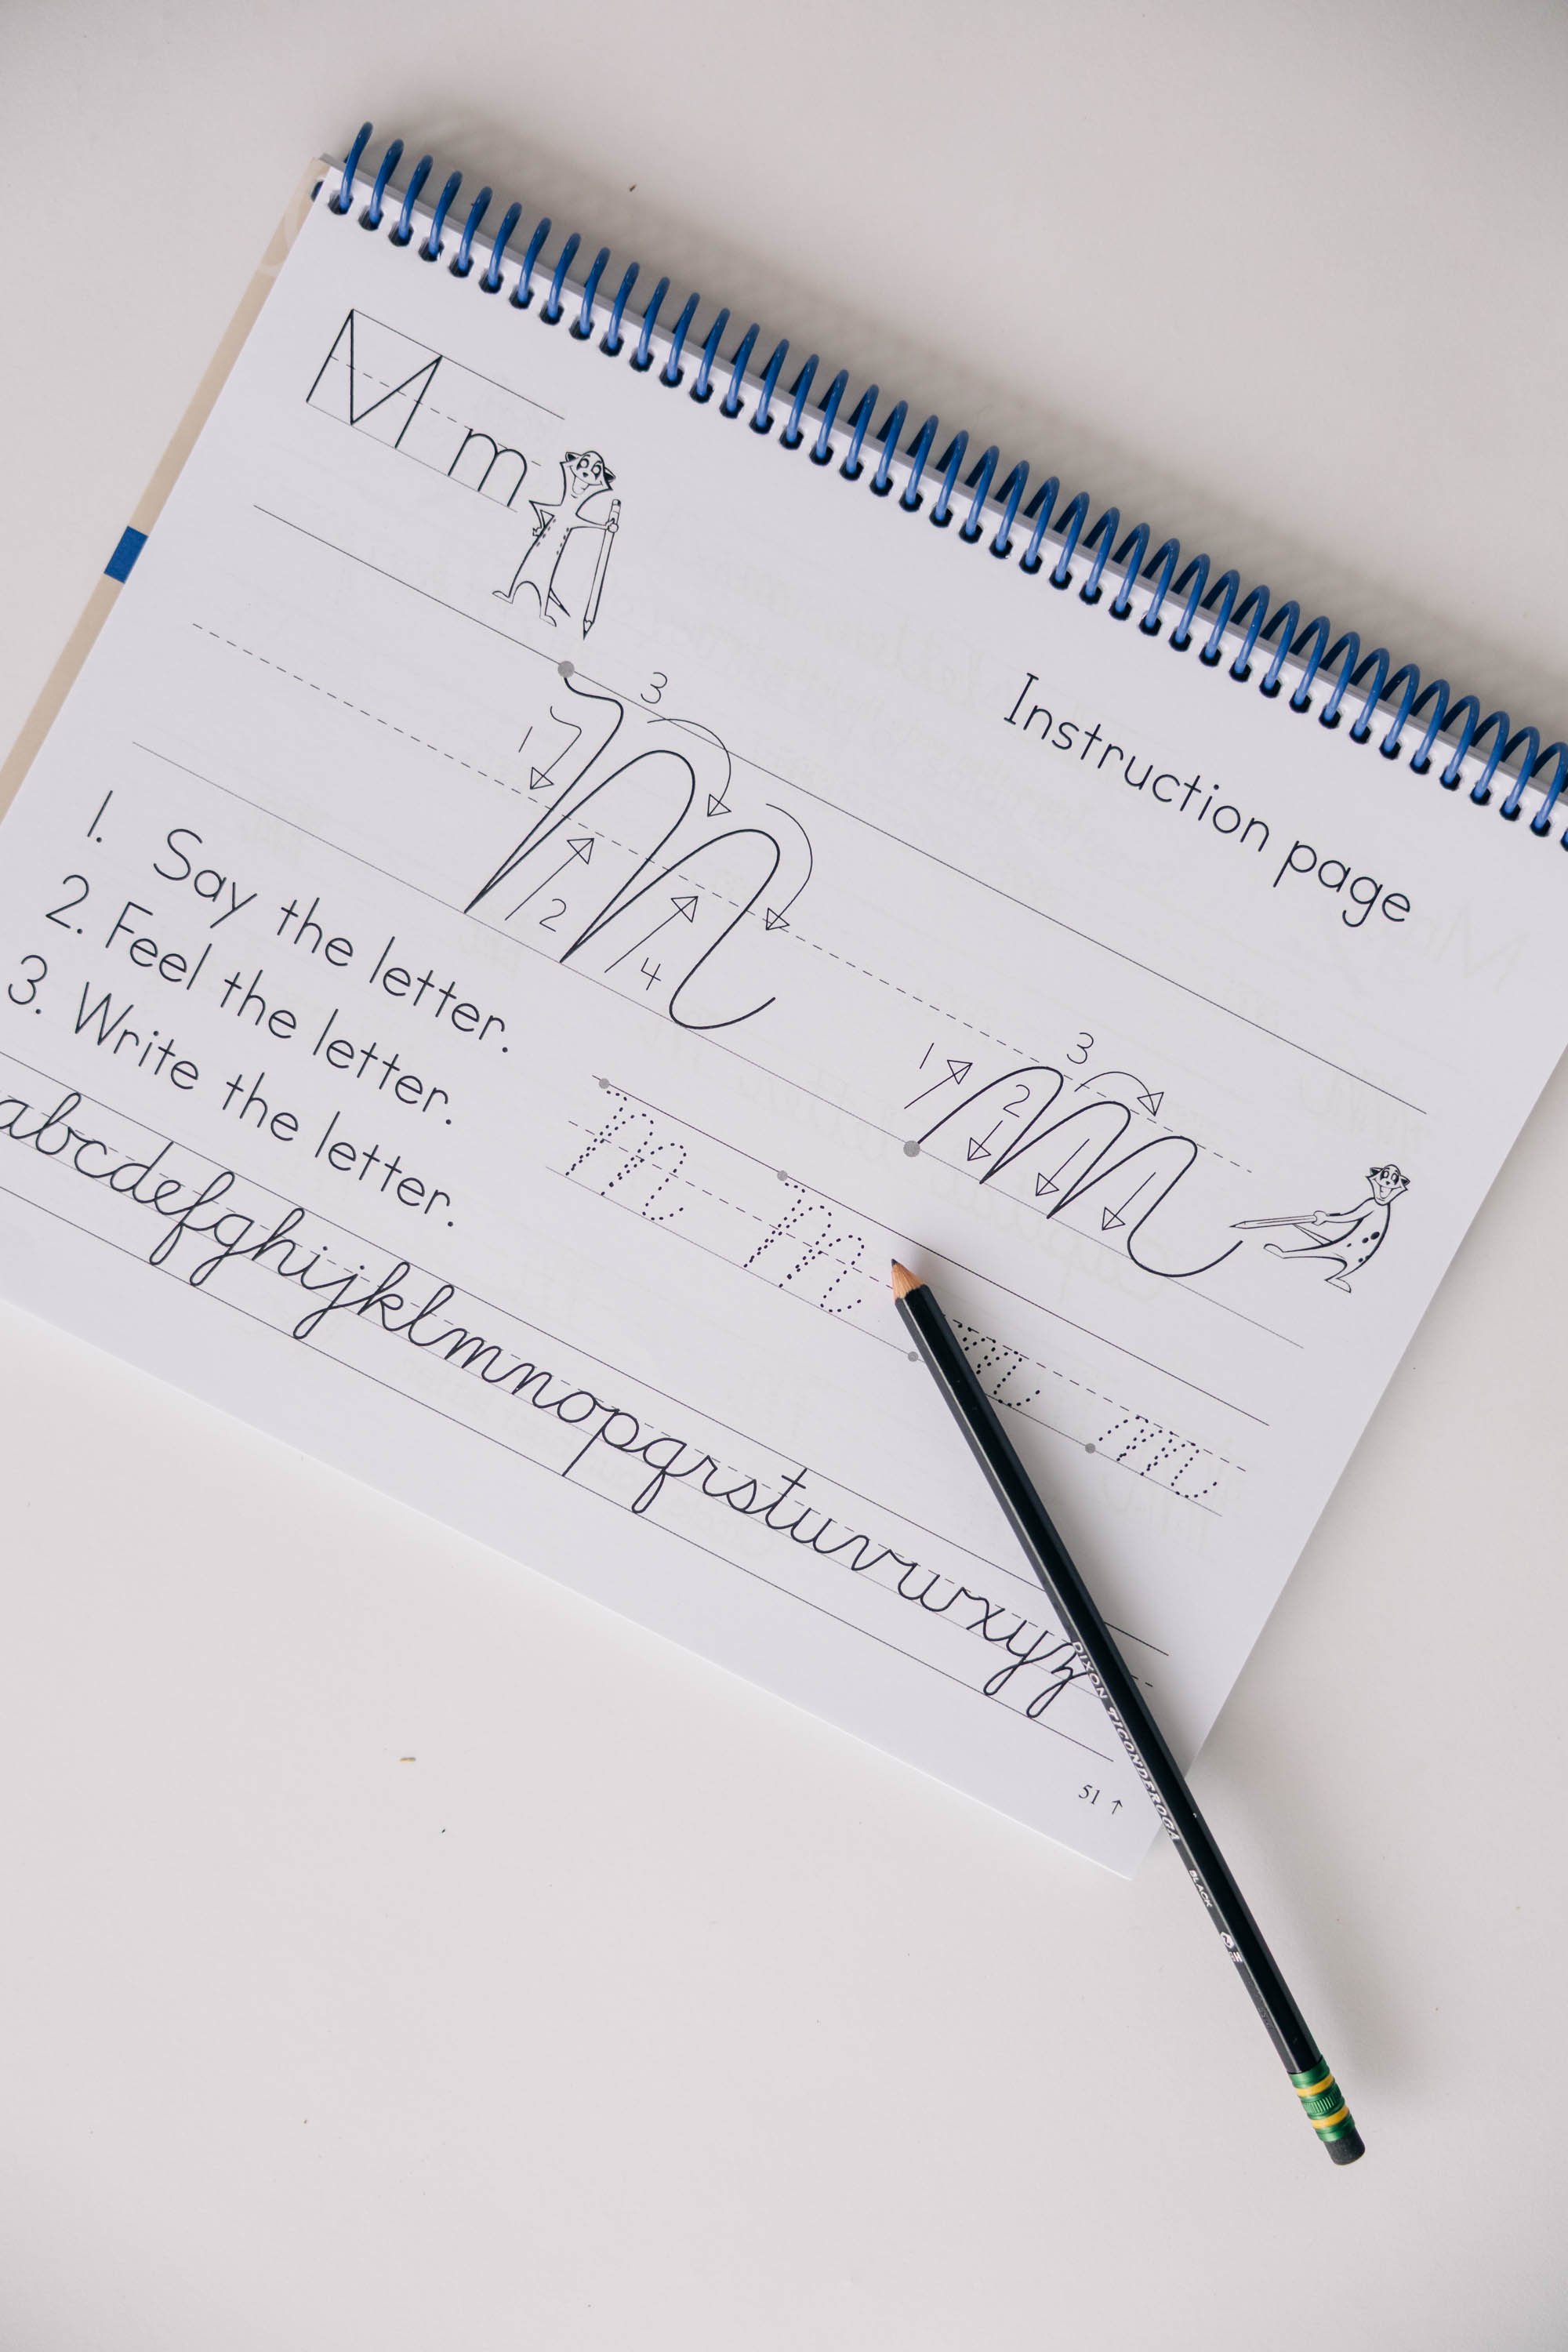 M m
Instruction page
1 3
2 4
M
1 2 3
m
1. Say the letter.
2. Feel the letter.
3. Write the letter.
M M m m
abcdefghijklmnopqrstuvwxyz
51 ↑
DIXON TICONDEROGA BLACK